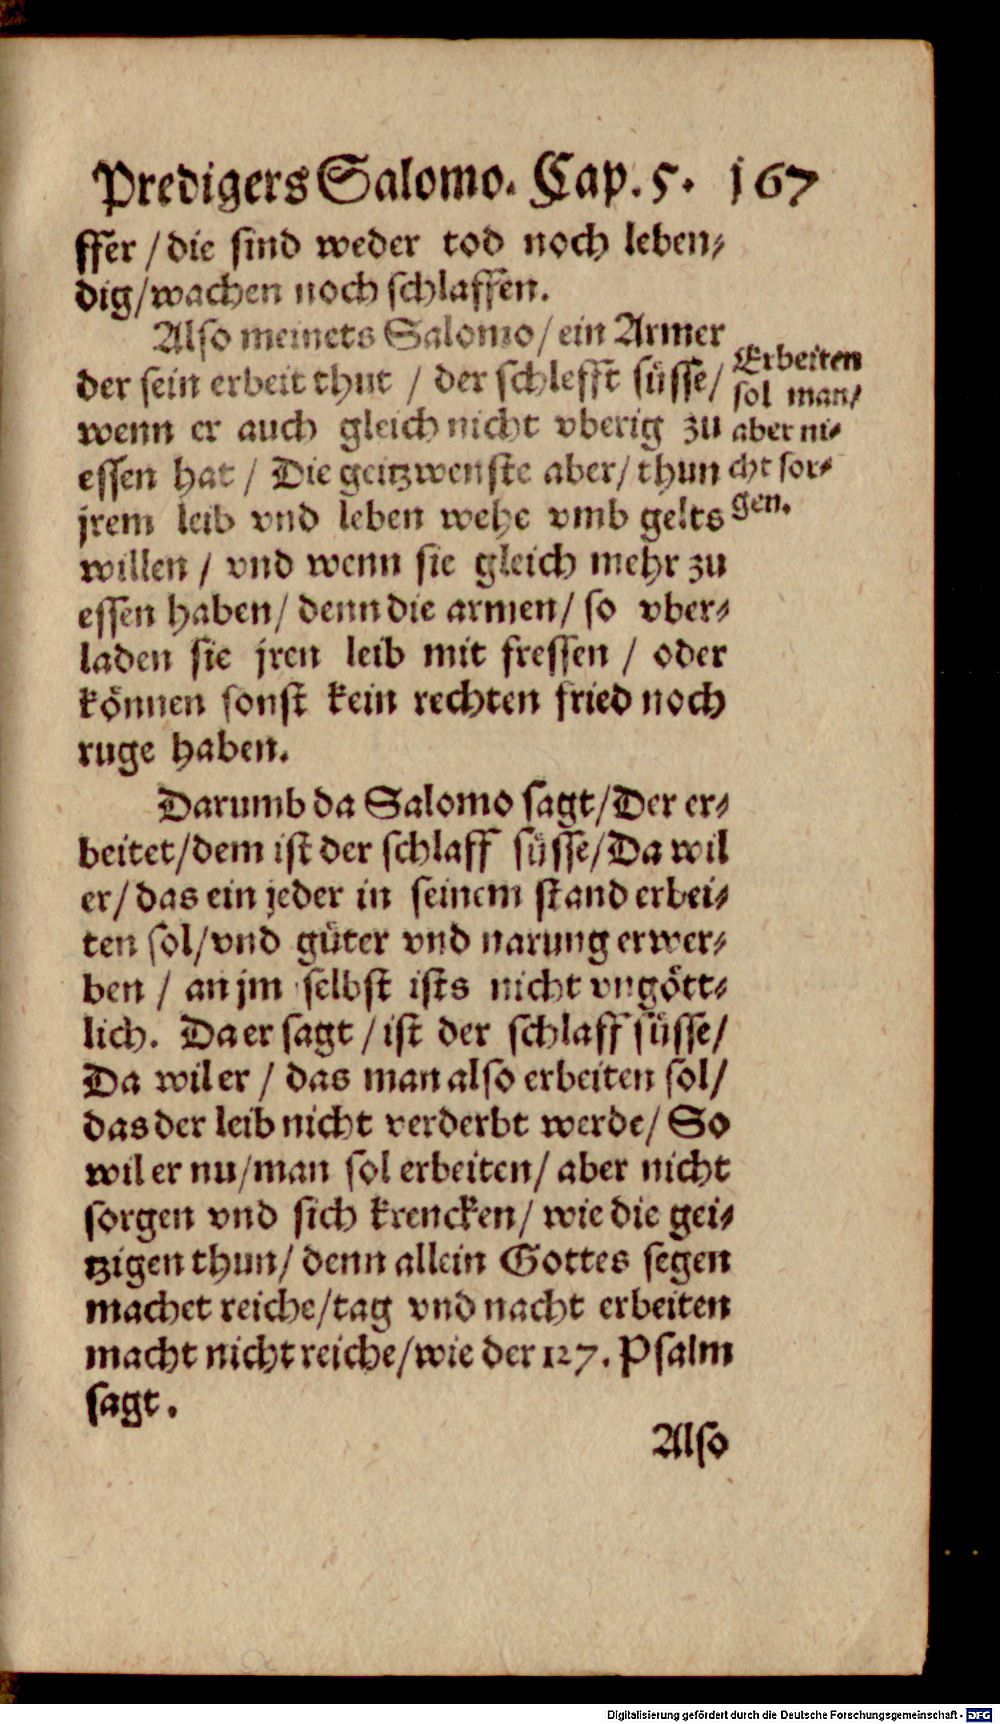 Predigers Salomo. Cap. 5. 167
ffer / die sind weder tod noch leben⸗
dig/wachen noch schlaffen.
Also meinets Salomo/ ein Armer
der sein erbeit thut / der schlefft süsse/
wenn er auch gleich nicht vberig zu
essen hat / Die geitzwenste aber/ thun
jrem leib vnd leben wehe vmb gelts
willen / vnd wenn sie gleich mehr zu
essen haben/ denn die armen/ so vber⸗
laden sie jren leib mit fressen / oder
können sonst kein rechten fried noch
ruge haben.
Erbeiten
sol man/
aber ni⸗
cht sor⸗
gen.
Darumb da Salomo sagt/Der er⸗
beitet/dem ist der schlaff süsse/Da wil
er/ das ein jeder in seinem stand erbei⸗
ten sol/vnd güter vnd narung erwer⸗
ben / an jm selbst ists nicht vngött⸗
lich. Da er sagt / ist der schlaff süsse/
Da wil er / das man also erbeiten sol/
das der leib nicht verderbt werde/ So
wil er nu/man sol erbeiten/ aber nicht
sorgen vnd sich krencken/ wie die gei⸗
tzigen thun/ denn allein Gottes segen
machet reiche/tag vnd nacht erbeiten
macht nicht reiche/wie der 127. Psalm
sagt.
Also
Digitalisierung gefördert durch die Deutsche Forschungsgemeinschaft - DFG